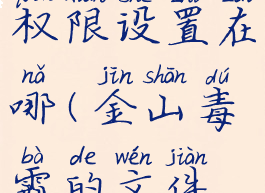 权限设置在
nǎ jīn shān dú
哪(金山毒
bà de wén jiàn
霸的文件